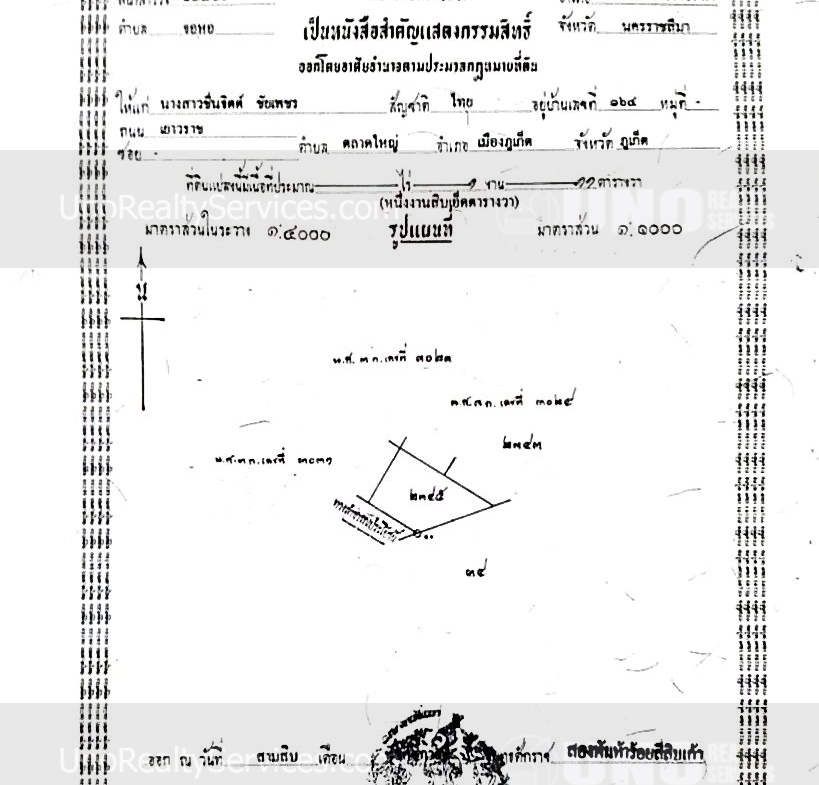 ตำบล จอหอ เป็นหนังสือสำคัญแสดงกรรมสิทธิ์ จังหวัด นครราชสีมา
ออกโดยอาศัยอำนาจตามประมวลกฎหมายที่ดิน
ให้แก่ นางสาวชื่นจิตต์ ชัยเพชร สัญชาติ ไทย อยู่บ้านเลขที่ ๑๖๔ หมู่ที่ -
ถนน เยาวราช
ซอย - ตำบล ตลาดใหญ่ อำเภอ เมืองภูเก็ต จังหวัด ภูเก็ต
ที่ดินแปลงนี้มีเนื้อที่ประมาณ ไร่ ๑ งาน ๑๑ ตารางวา
(หนึ่งงานสิบเอ็ดตารางวา)
UnoRealtyServices.com UNO REALTY SERVICES
มาตราส่วนในระวาง ๑:๔๐๐๐ รูปแผนที่ มาตราส่วน ๑:๑๐๐๐
น
น.ส. ๓ ก. เลขที่
น.ส. ๓ ก. เลขที่ ๓๐๒๕
๒๓๔๓
น.ส. ๓ ก. เลขที่ ๓๐๓๑
๒๓๔๕
๓๔
ออก ณ วันที่ สามสิบ เดือน พุทธศักราช สองพันห้าร้อยสี่สิบเก้า
UnoRealtyServices.com UNO REALTY SERVICES